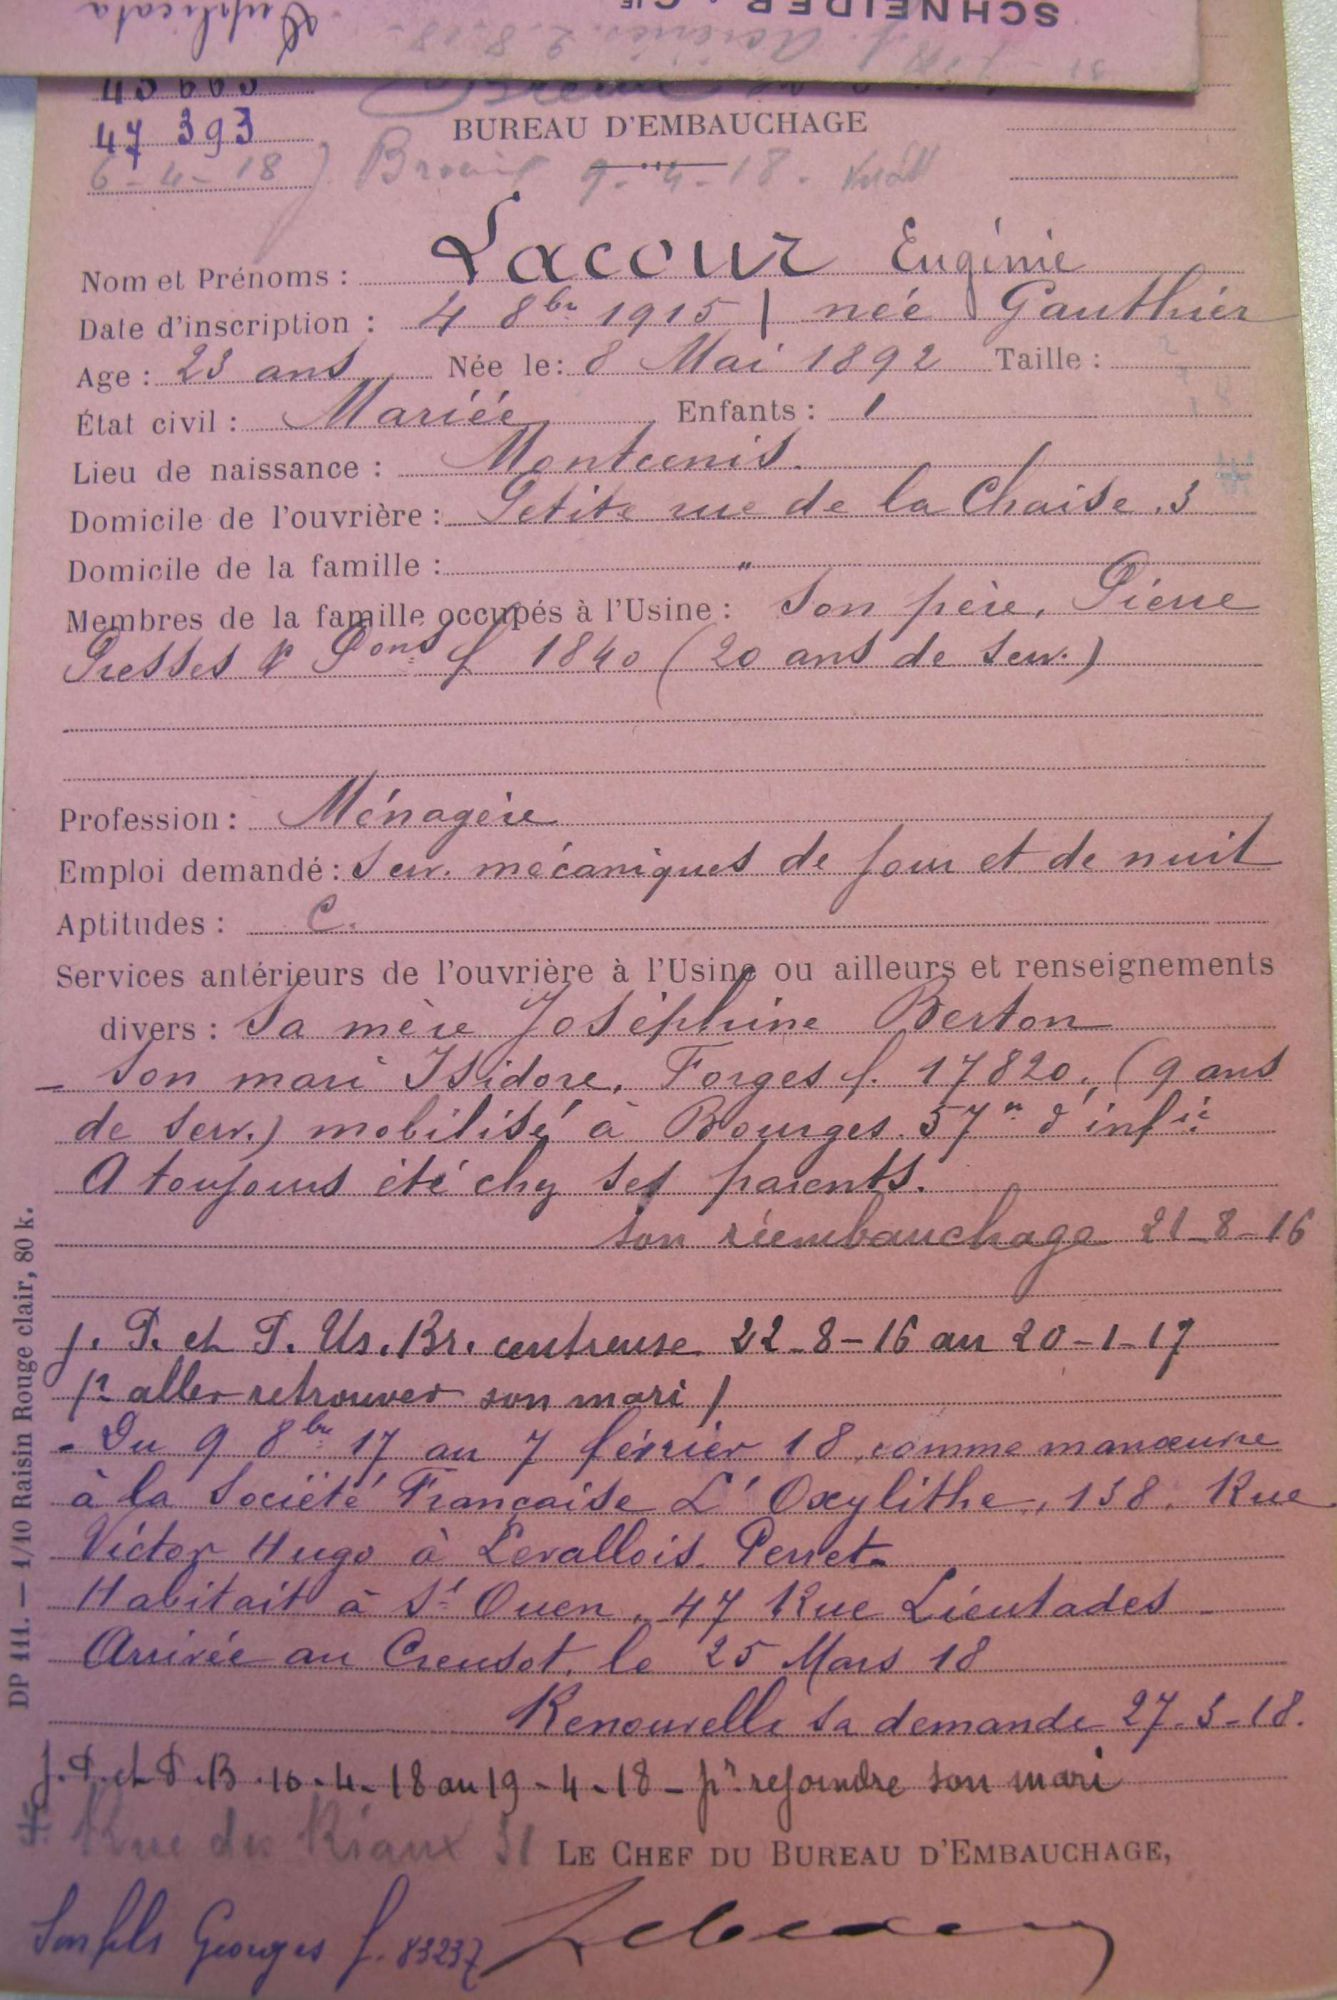 Duplicata
SCHNEIDER & Cie
2.8.18
43 663
47 393
BUREAU D'EMBAUCHAGE
6-4-18 Breuil 9-4-18.
Nom et Prénoms : Lacour Eugénie
Date d'inscription : 4 8bre 1915 / née Gauthier
Age : 23 ans Née le : 8 Mai 1892 Taille :
État civil : Mariée Enfants : 1
Lieu de naissance : Montcenis.
Domicile de l'ouvrière : Petite rue de la Chaise. 3
Domicile de la famille : "
Membres de la famille occupés à l'Usine : Son père, Pierre
Presses & Pons f 1840 (20 ans de serv.)
Profession : Ménagère
Emploi demandé : Serv. mécaniques de jour et de nuit
Aptitudes : C.
Services antérieurs de l'ouvrière à l'Usine ou ailleurs et renseignements
divers : Sa mère Joséphine Berton
- Son mari Isidore. Forges f. 17820. (9 ans
de serv.) mobilisé à Bourges. 37me d'infie
A toujours été chez ses parents.
Son réembauchage 21-8-16
f. P. et P. Us. Br. centreuse 22-8-16 au 20-1-17
(pr aller retrouver son mari)
- Du 9 8bre 17 au 7 février 18 comme manœuvre
à la Société Française L'Oxylithe, 138. Rue
Victor Hugo à Levallois. Perret.
Habitait à St Ouen, 47 Rue Lieutades
Arrivée au Creusot. le 25 Mars 18
Renouvelle sa demande 27-3-18.
f. P. et P. B. 10-4-18 au 19-4-18 - pr rejoindre son mari
Rue des Riaux 31
LE CHEF DU BUREAU D'EMBAUCHAGE,
Son fils Georges f. 83237
DP 111. — 1/10 Raisin Rouge clair, 80 k.